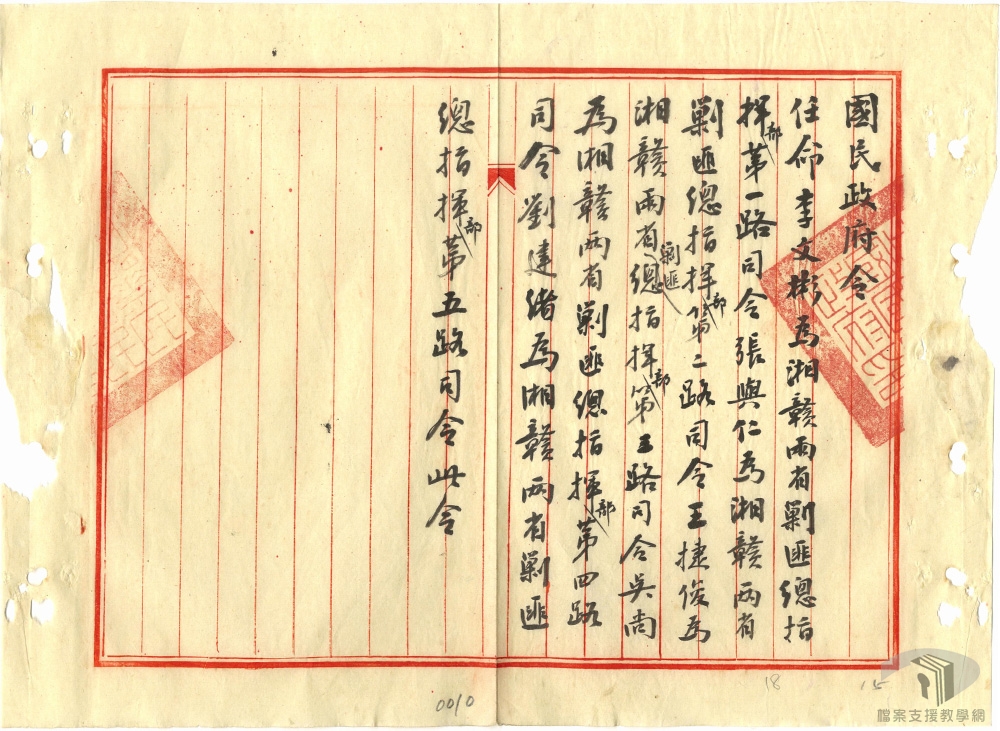 國民政府令
任命李文彬為湘贛兩省剿匪總指
揮部第一路司令張與仁為湘贛兩省
剿匪總指揮部第二路司令王捷俊為
湘贛兩省剿匪總指揮部第三路司令吳尚
為湘贛兩省剿匪總指揮部第四路
司令劉建緒為湘贛兩省剿匪
總指揮部第五路司令此令
0010
18
15
檔案支援教學網